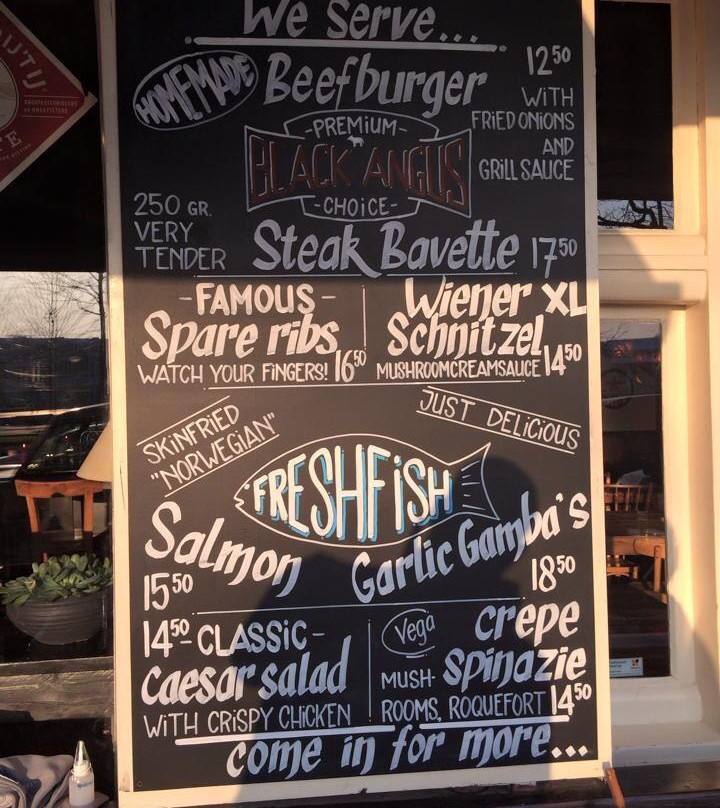 We Serve...
HOMEMADE Beefburger 1250
WITH
FRIED ONIONS
AND
GRILL SAUCE
-PREMIUM-
BLACK ANGUS
-CHOICE-
250 GR.
VERY
TENDER
Steak Bavette 1750
-FAMOUS-
Spare ribs
WATCH YOUR FINGERS! 1650
Wiener XL
Schnitzel
MUSHROOMCREAMSAUCE 1450
SKINFRIED
"NORWEGIAN"
JUST DELICIOUS
FRESHFISH
Salmon
1550
Garlic Gamba's
1850
1450 -CLASSIC-
caesar salad
WITH CRISPY CHICKEN
Vega crepe
spinazie
MUSH-
ROOMS, ROQUEFORT 1450
come in for more...